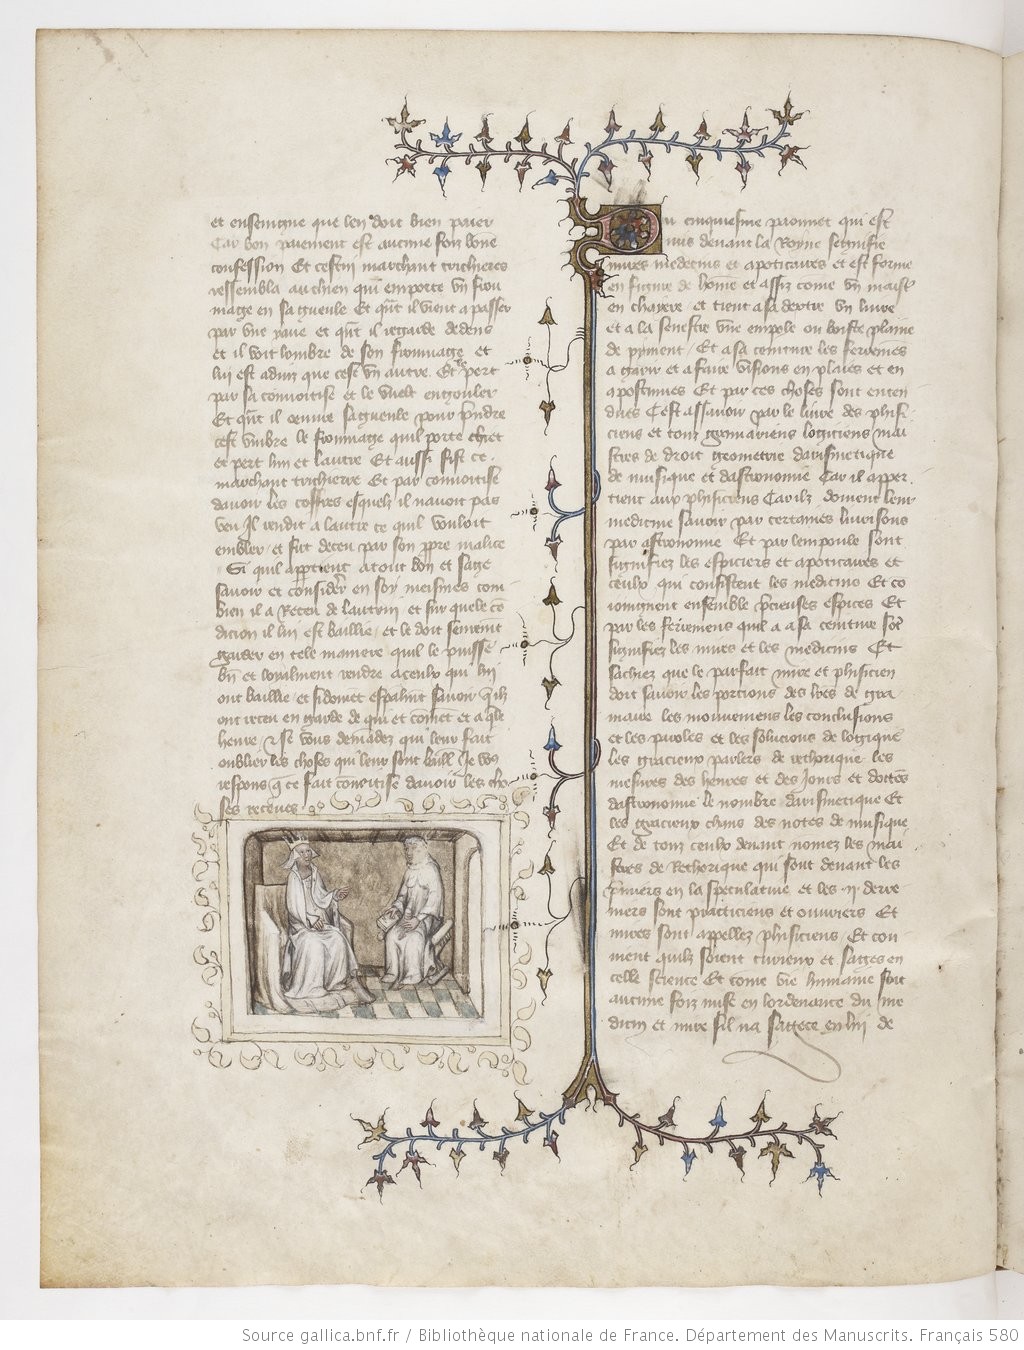 et enseingne que len doit bien paier
Car bon paiement est aucune foiz bone
confession Et cestui marchant tricheres
ressembla au chien qui emporte un frou
mage en sa gueule Et qnt il vient a passer
par vne yaue et qnt il regarde dedens
et il voit lombre de son froumage et
lui est aduiz que cest vn autre. Et pert
par sa couuoitise et le veult engouler
Et qnt il oeuure sa gueule pour prndre
cest vmbre le froumage quil porte chiet
et pert lun et lautre Et aussi fist ce
marchant trichierre Et par conuoitise
dauoir les coffres esquelz il nauoit pas
veu Il rendit a lautre ce quil vouloit
embler et fut deceu par son ppre malice
Si quil apptient a tout bon et sage
sauoir et considerer en soy meismes com
bien il a Receu de lautrui et sur quele co
dicion il lui est baillie et le doit sement
garder en tele maniere quil le puisse
bn et loyalment rendre a ceulx qui lui
ont baillie et sidoiuet espalmt sauoir qilz
ont receu en garde de qui et comet et a qle
heure Et se vous demadez qui leur fait
oublier les choses qui leur sont baill Je vos
respons q ce fait conuoitise dauoir les cho
ses receues
Du cinquiesme paonnet qui est
mis deuant la Royne segnifie
mires medecins et apoticaires et est forme
en figure de home et assiz come vn maist
en chayere et tient a sa dextre vn liure
et a la senestre vne empole ou boiste plaine
de pyment Et a sa ceinture les ferremes
a garir et a faire visions en plaies et en
apostumes Et par ces choses sont enten
dues Cest assauoir par le liure des phisi
ciens et touz gramariens logiciens mai
stres de droit geometrie darismetique
de musique et dastronomie Car il apper
tient aux phisiciens Car ilz doiuent leur
medicine sauoir par certaines liurisons
par astronomie Et par lempoule sont
signifiez les espiciers et apoticaires et
ceulx qui consistent les medicine Et co
ioingnent ensemble pcieuses espices Et
par les ferremens quil a a sa ceinture sot
signifiez les mires et les medicins Et
sachiez que le parfait mire et phisicien
doit sauoir les porcions des lres de gra
maire les mouuemens les conclusions
et les paroles et les solucions de logique
les gracieux parlers de rethorique les
mesures des heures et des Jours et doctes
dastronomie le nombre darismetique Et
les gracieux chans des notes de musique
Et de touz ceulx deuant nomez les mai
stres de Rethorique qui sont deuant les
pmiers en la speculatiue et les .ij. derre
niers sont practiciens et ouuriers Et
mires sont appellez phisiciens Et cou
uient quilz soient curieux et sages en
celle science Et come vie humaine soit
aucune foiz mise en lordenance du me
dicin et mire sil na sagece en lui de
Source gallica.bnf.fr / Bibliothèque nationale de France. Département des Manuscrits. Français 580